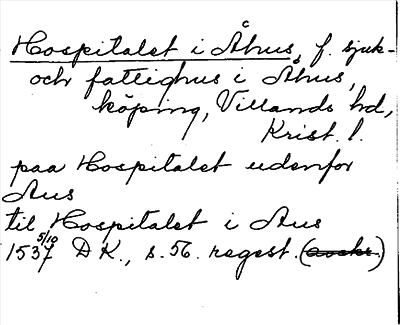 Hospitalet i Åhus, f. sjuk-
och fattighus i Åhus,
köping, Villands hd,
Krist. l.
paa Hospitalet udenfor
Aus
til Hospitalet i Aus
1537 5/10 D K., s. 56. regest. (avskr.)